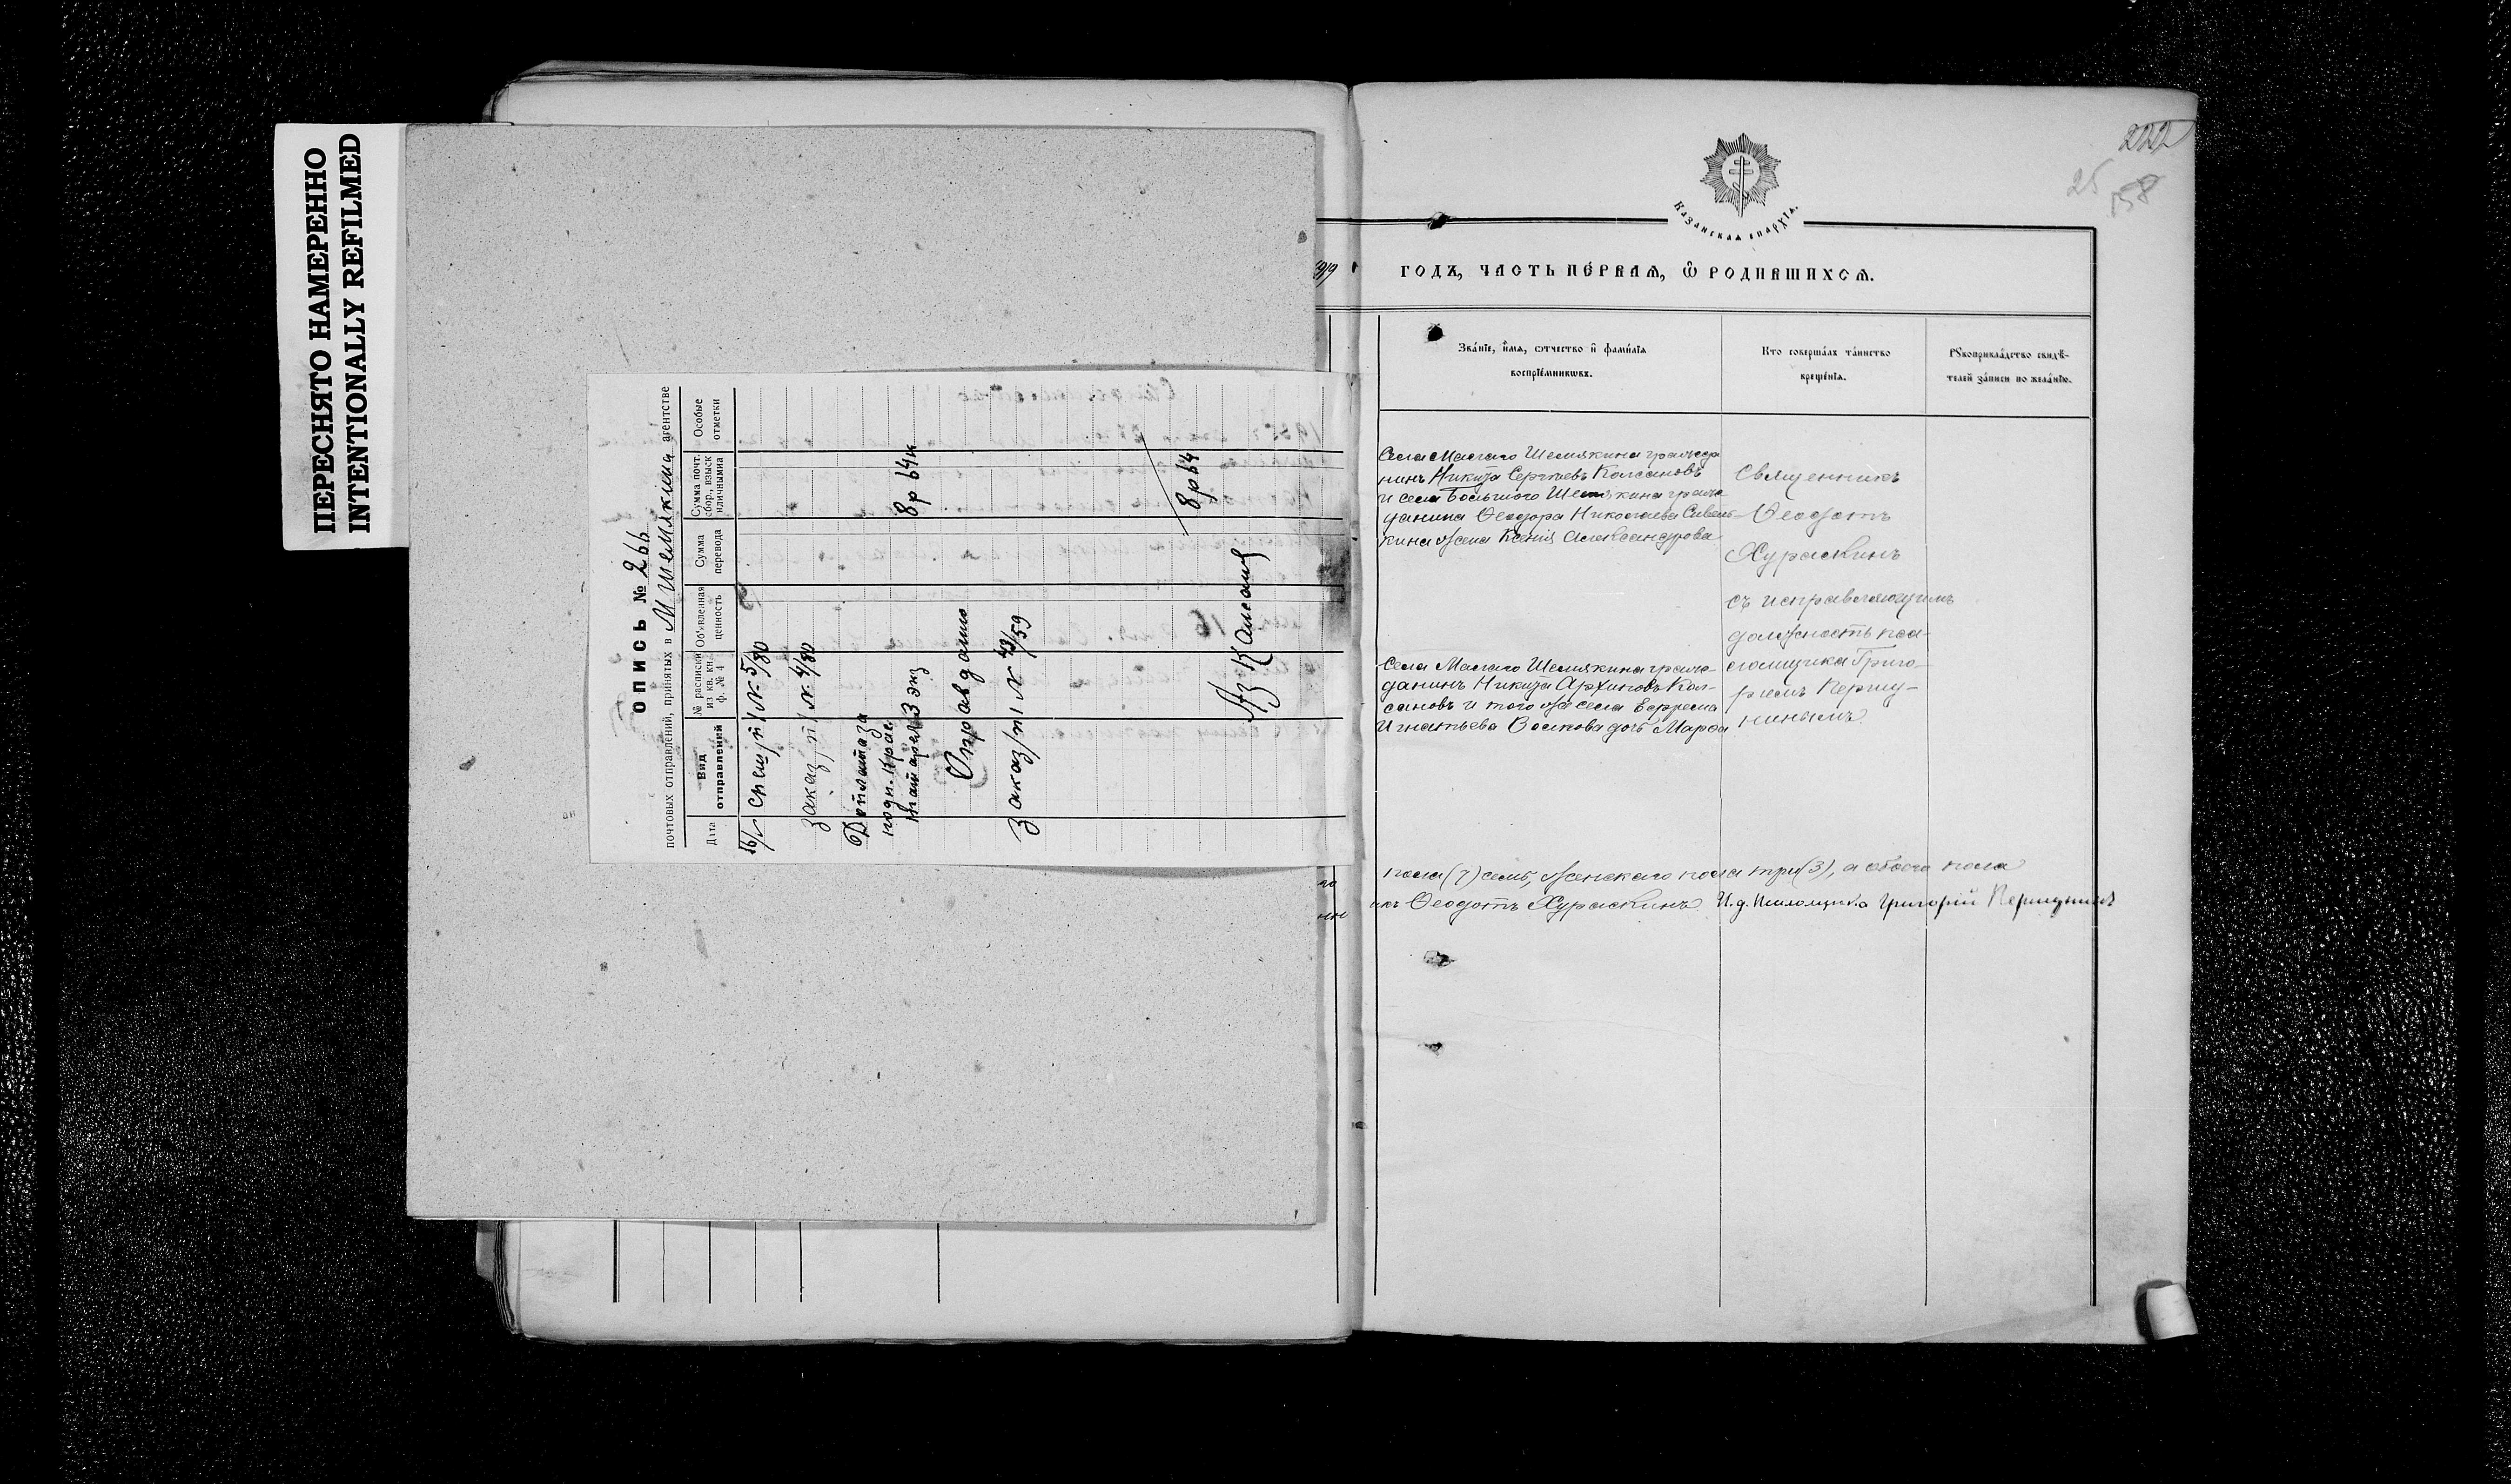 ПЕРЕСНЯТО НАМЕРЕННО
INTENTIONALLY REFILMED
опись № 266
почтовых отправлений, принятых в М Шемякина агентстве
Дата
Вид отправлений
№ расписки из кв. кн. ф. № 4
Объявленная ценность
Сумма перевода
Сумма почт. сбор., взыск наличными
Особые отметки
спец/п / № 5/80
заказ/п / № 4/80
8р 64к
Оправдано
Заказ/п 1 № 43/59
8р 64
222
25
Казанская епархїа.
годъ, часть пе́рваѧ, ѡ҆ родившихсѧ.
Зва́нїе, и҆́мѧ, ѻ҆́тчество и҆ фамѝлїѧ
воспрїе́мникѡвъ.
Кто соверша́лъ та́инство
креще́нїѧ.
Рꙋкоприкла́дство свидѣ́-
телей за́писи по жела́нїю.
Села Малаго Шемякина гражда
нинъ Никита Сергѣевъ Колсановъ
и села Большого Шемякина гражда
данина Ѳеодора Николаева Сивель-
кина жена Ксенія Александрова
Священникъ
Ѳеодотъ
Хураскинъ
съ исправляющимъ
должность пса-
ломщика Григо-
ріемъ Першу-
нинымъ
Села Малаго Шемякина гражда-
данинъ Никита Архиповъ Кол-
сановъ и того же села Ефрема
Игнатьева Волкова дочь Марѳа
пола (7) семь, женскаго пола три (3), а обоего пола
икъ Ѳеодотъ Хураскинъ И.д. Псаломщика Григорій Першунинъ